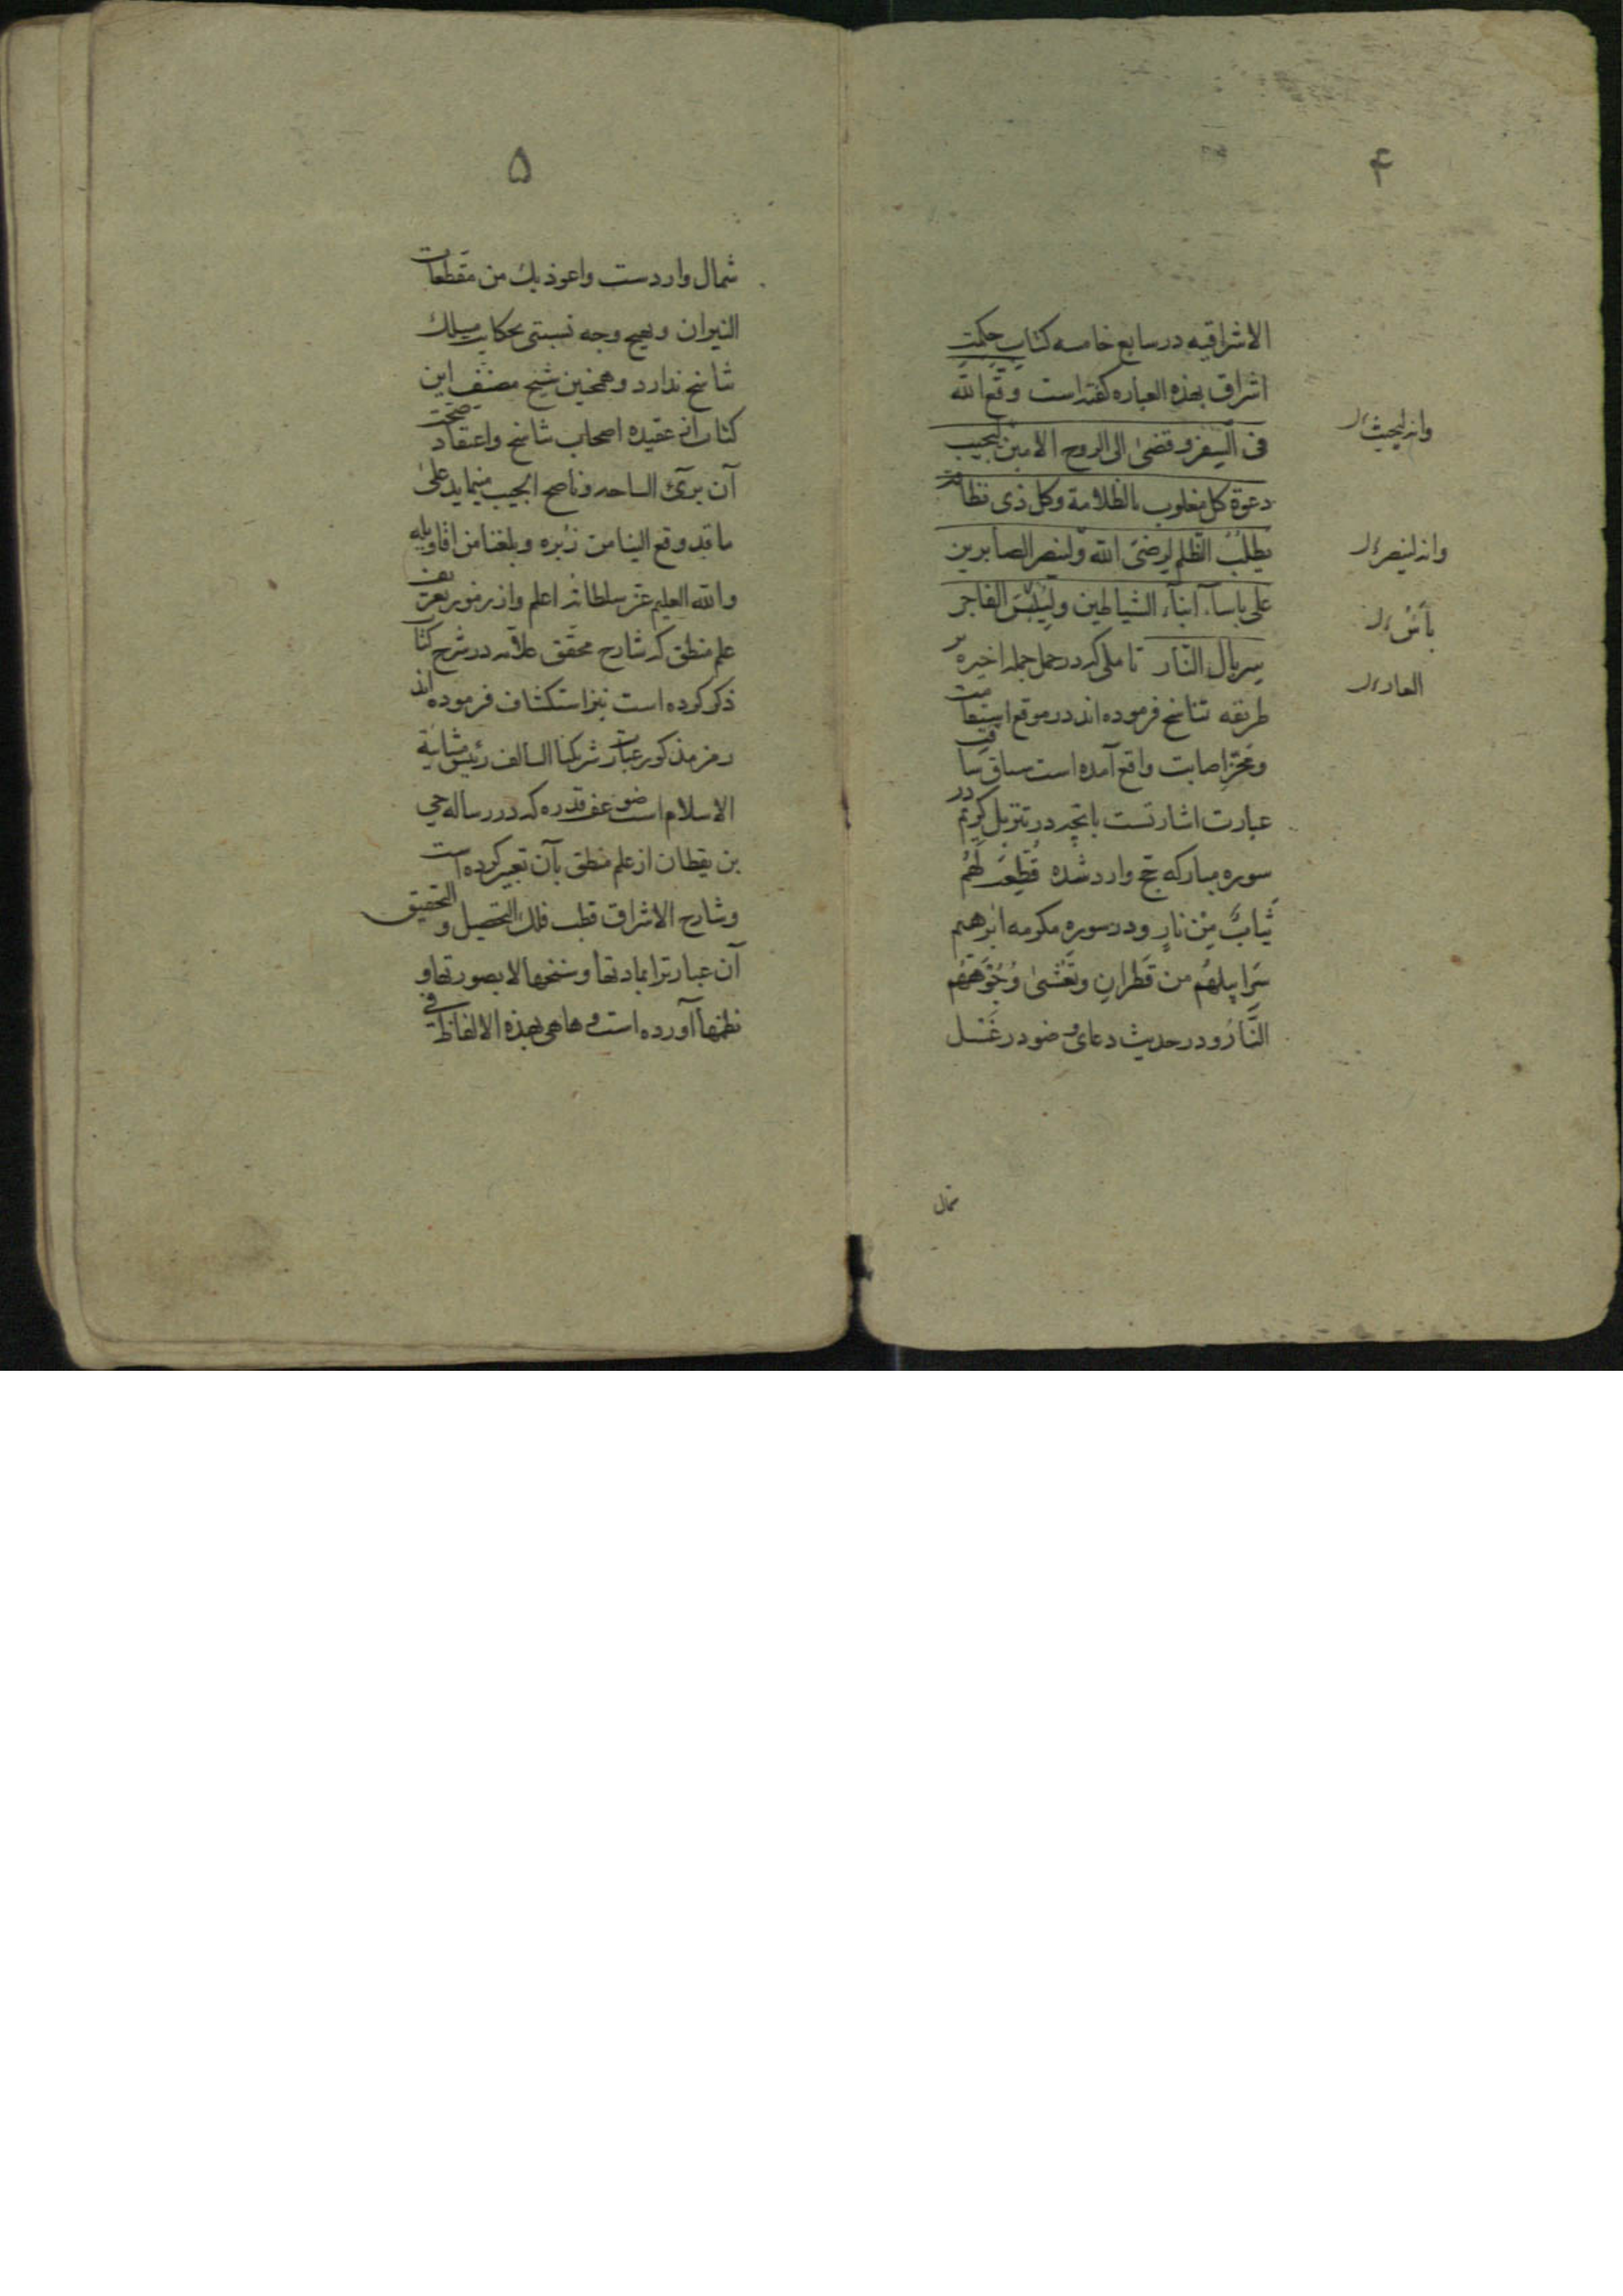 ۴
الاشراقیه در سابع خامسه کتاب حکمت
اشراق بهذه العباره گفته است وقع الله
فی السفر و قضی الی الروح الامین لیجیب
دعوة کل مغلوب بالظلامة وکل ذی
یطلب الظلم لرضی الله ولینصر الصابرین
علی باساء ابناء الشیاطین ولیلبس الفاجر
سربال النار تا ملی که در حمل جمله اخیره بر
طریقه تناسخ فرموده‌اند در موقع
و اصابت واقع آمده است سیاق
عبارت اشارتست بانچه در تنزیل کریم در
سوره مبارکه حج وارد شده قُطِّعَت لَهُم
ثِیابٌ مِن نارٍ و در سوره مکرمه ابرهیم
سَرابیلهُم من قَطرانٍ وتَغشی وُجُوهَهُم
النّارُ و در حدیث دعای وضو در غَسل
شمال
وانه لیجیب
وانه لینصر
بأس
۵
شمال واردست واعوذ بك من مقطعات
النیران و بهیچ وجه نسبتی بحکایت مسلك
تناسخ ندارد و همچنین شیخ مصنف این
کتاب از عقیده اصحاب تناسخ و اعتقاد صحت
آن بریّ الساحه و ناصح الجیب مینماید علی
ما قد وقع الینا من زبره و بلغنا من اقاویله
والله العلیم عز سلطانه اعلم و از رموز تعریف
علم منطق که شارح محقق علامه در شرح کتاب
ذکر کرده است نیز استکشاف فرموده‌اند
رمز مذکور عبارت شریکنا السالف رئیس مشائیة
الاسلام است ضوعف قدره که در رساله حی
بن یقظان از علم منطق بآن تعبیر کرده است
وشارح الاشراق قطب فلك التحصیل و التحقیق
آن عبارترا بمادتها وسنخها لا بصورتها و
نظمها آورده است و ها هی بهذه الالفاظ فی